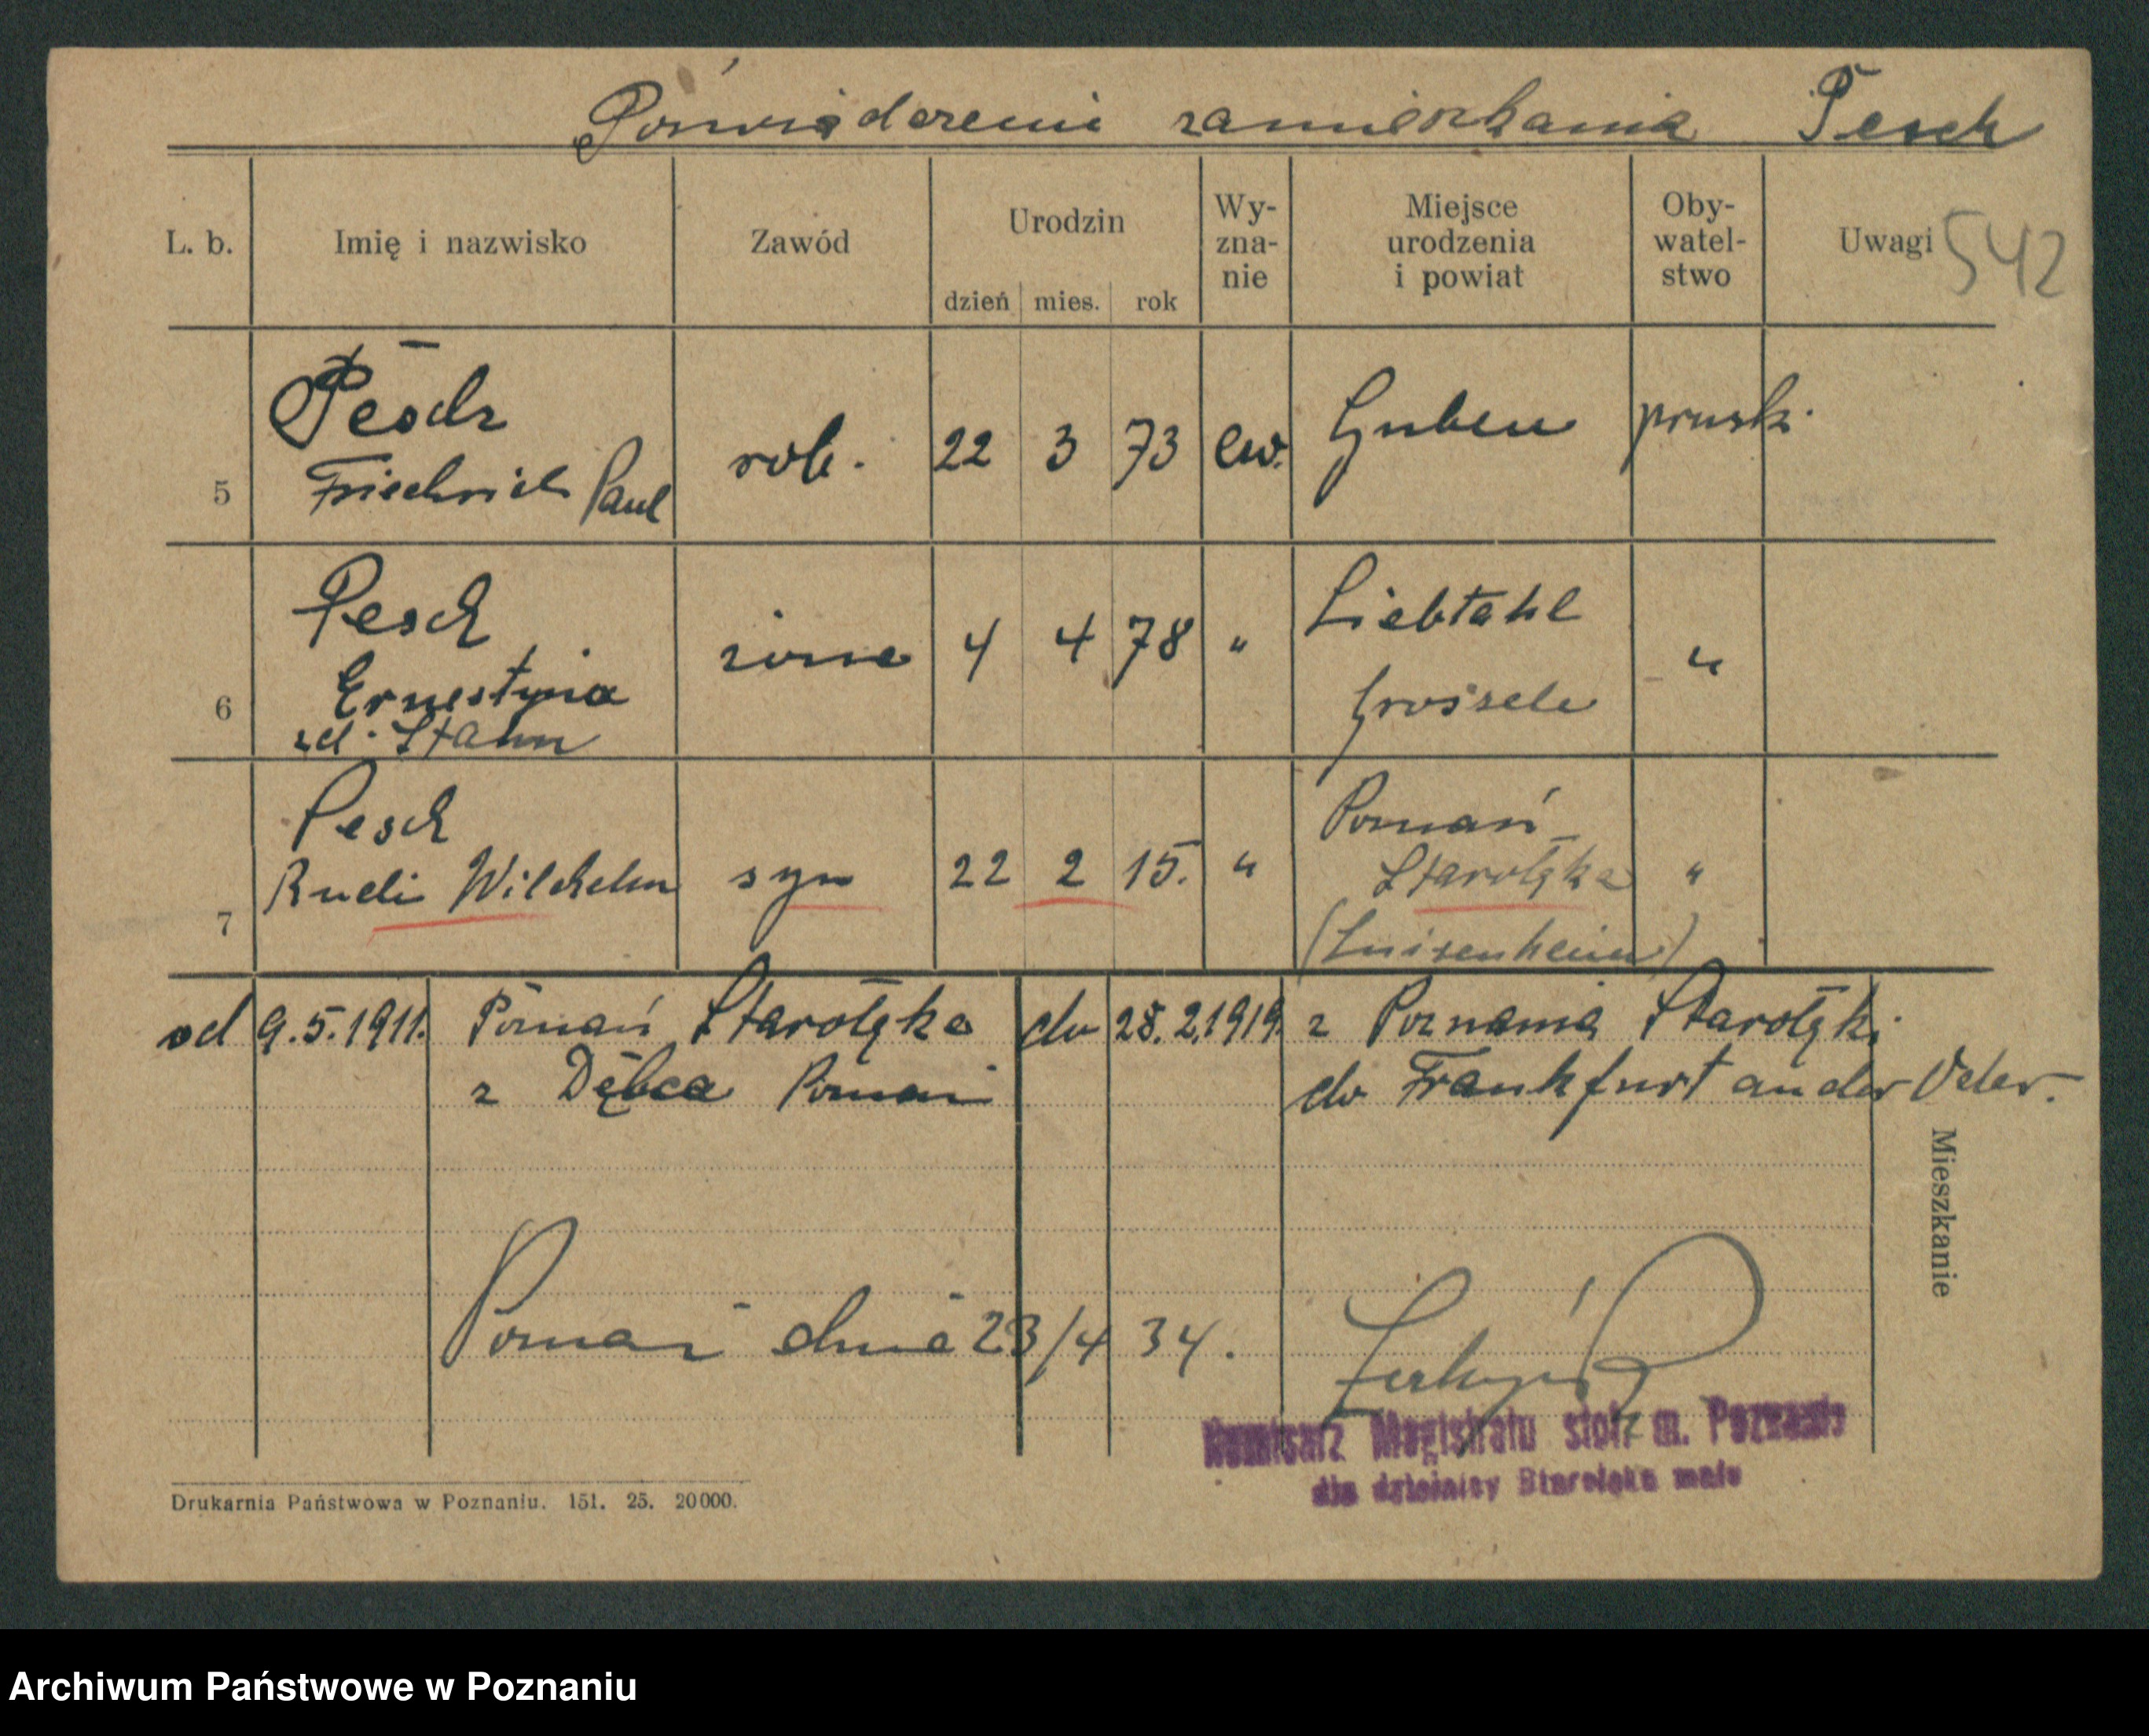 Poświadczenie zamieszkania Pesch
L. b. Imię i nazwisko Zawód Urodzin Wy-zna-nie Miejsce urodzenia i powiat Oby-watel-stwo Uwagi 542
dzień mies. rok
Pesch
5 Friedrich Paul rob. 22 3 73 ew. Guben prusk.
Pesch Liebtahl
6 Ernestyna żona 4 4 78 "
zd. Stahn "
Pesch Poznań-
7 Rudi Wilchelm syn 22 2 15. " Starołęka "
(Luisenheim)
od 9.5.1911. Poznań Starołęka do 28.2.1919. z Poznania Starołęki
z Dębca Poznań do Frankfurt an der Oder.
Mieszkanie
Poznań dnia 23/4 34.
Komisarz Magistratu stoł. m. Poznania
dla dzielnicy Starołęka mała
Drukarnia Państwowa w Poznaniu. 151. 25. 20000.
Archiwum Państwowe w Poznaniu